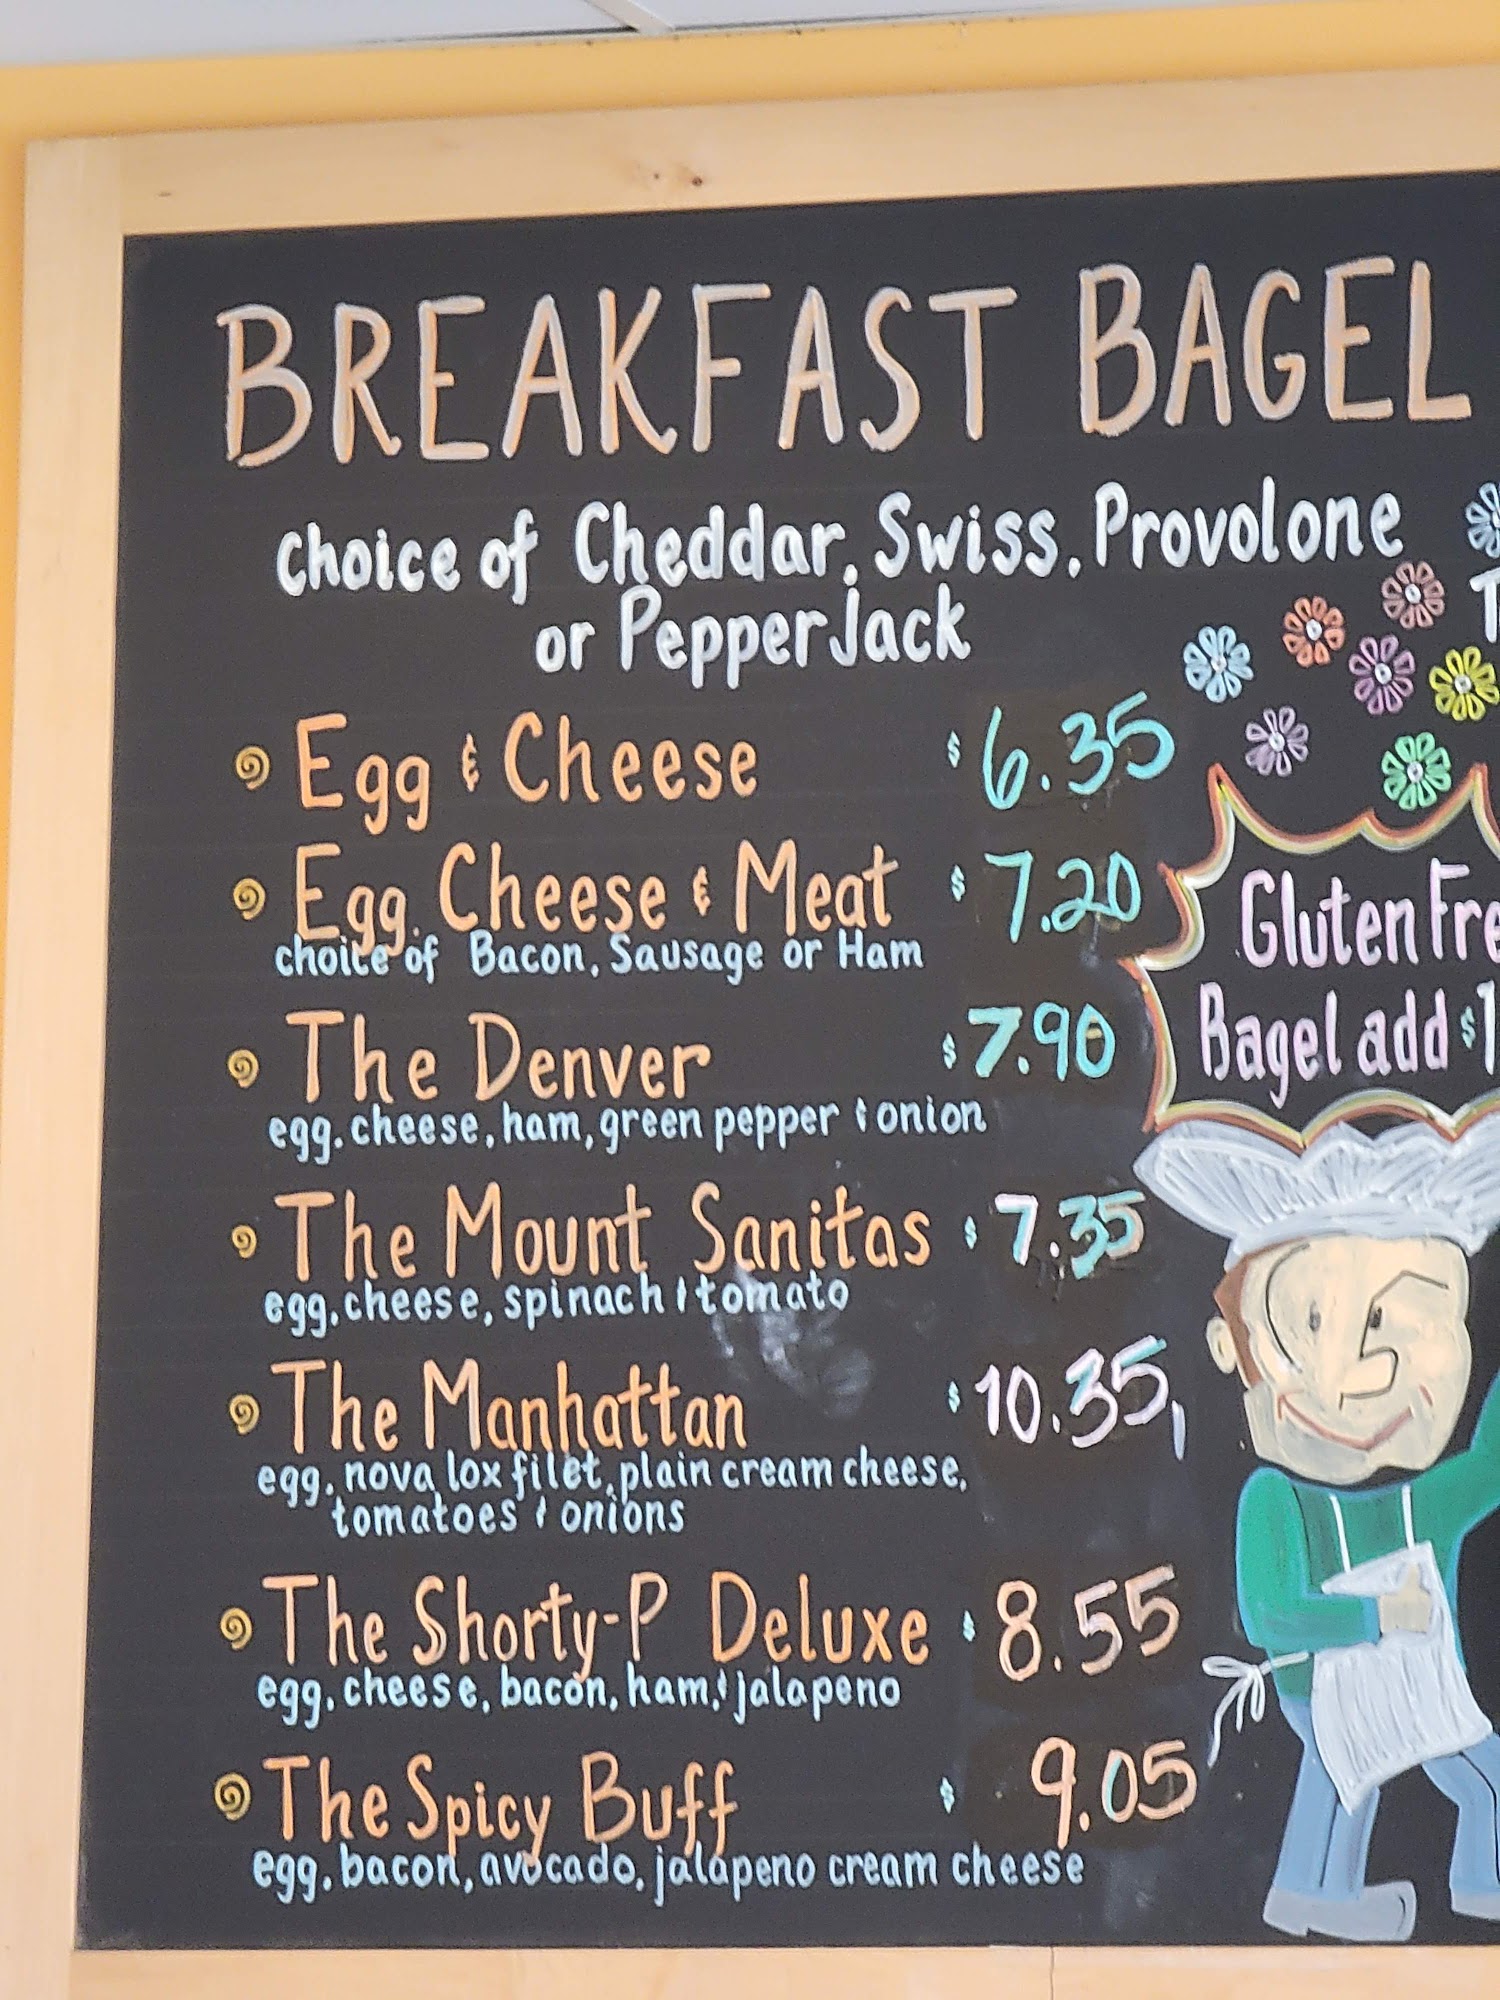 BREAKFAST BAGEL
Choice of Cheddar, Swiss, Provolone
or Pepper Jack
Egg & Cheese $6.35
Egg, Cheese & Meat $7.20
choice of Bacon, Sausage or Ham
The Denver $7.90
egg, cheese, ham, green pepper & onion
The Mount Sanitas $7.35
egg, cheese, spinach & tomato
The Manhattan $10.35
egg, nova lox filet, plain cream cheese,
tomatoes & onions
The Shorty-P Deluxe $8.55
egg, cheese, bacon, ham, & jalapeno
The Spicy Buff $9.05
egg, bacon, avocado, jalapeno cream cheese
Gluten Fre
Bagel add $1